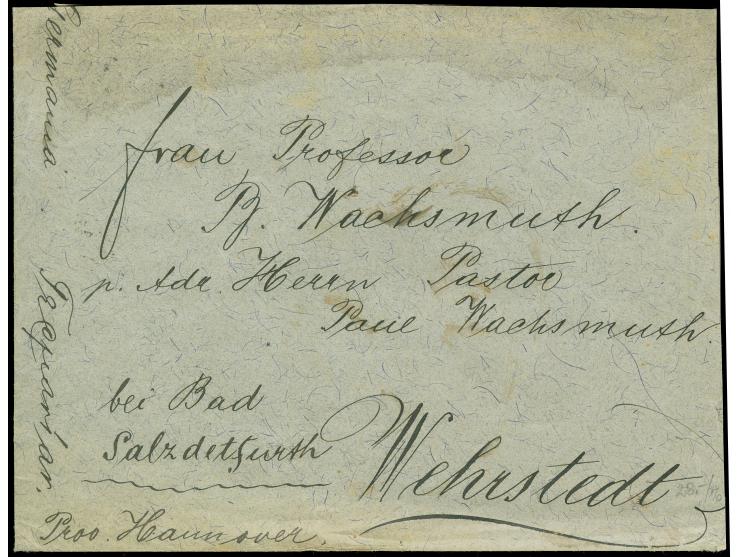 Frau Professor
B. Wachsmuth.
p. Adr. Herrn Pastor
Paul Wachsmuth.
bei Bad
Salzdetfurth
Wehrstedt
Prov. Hannover.
Germania.